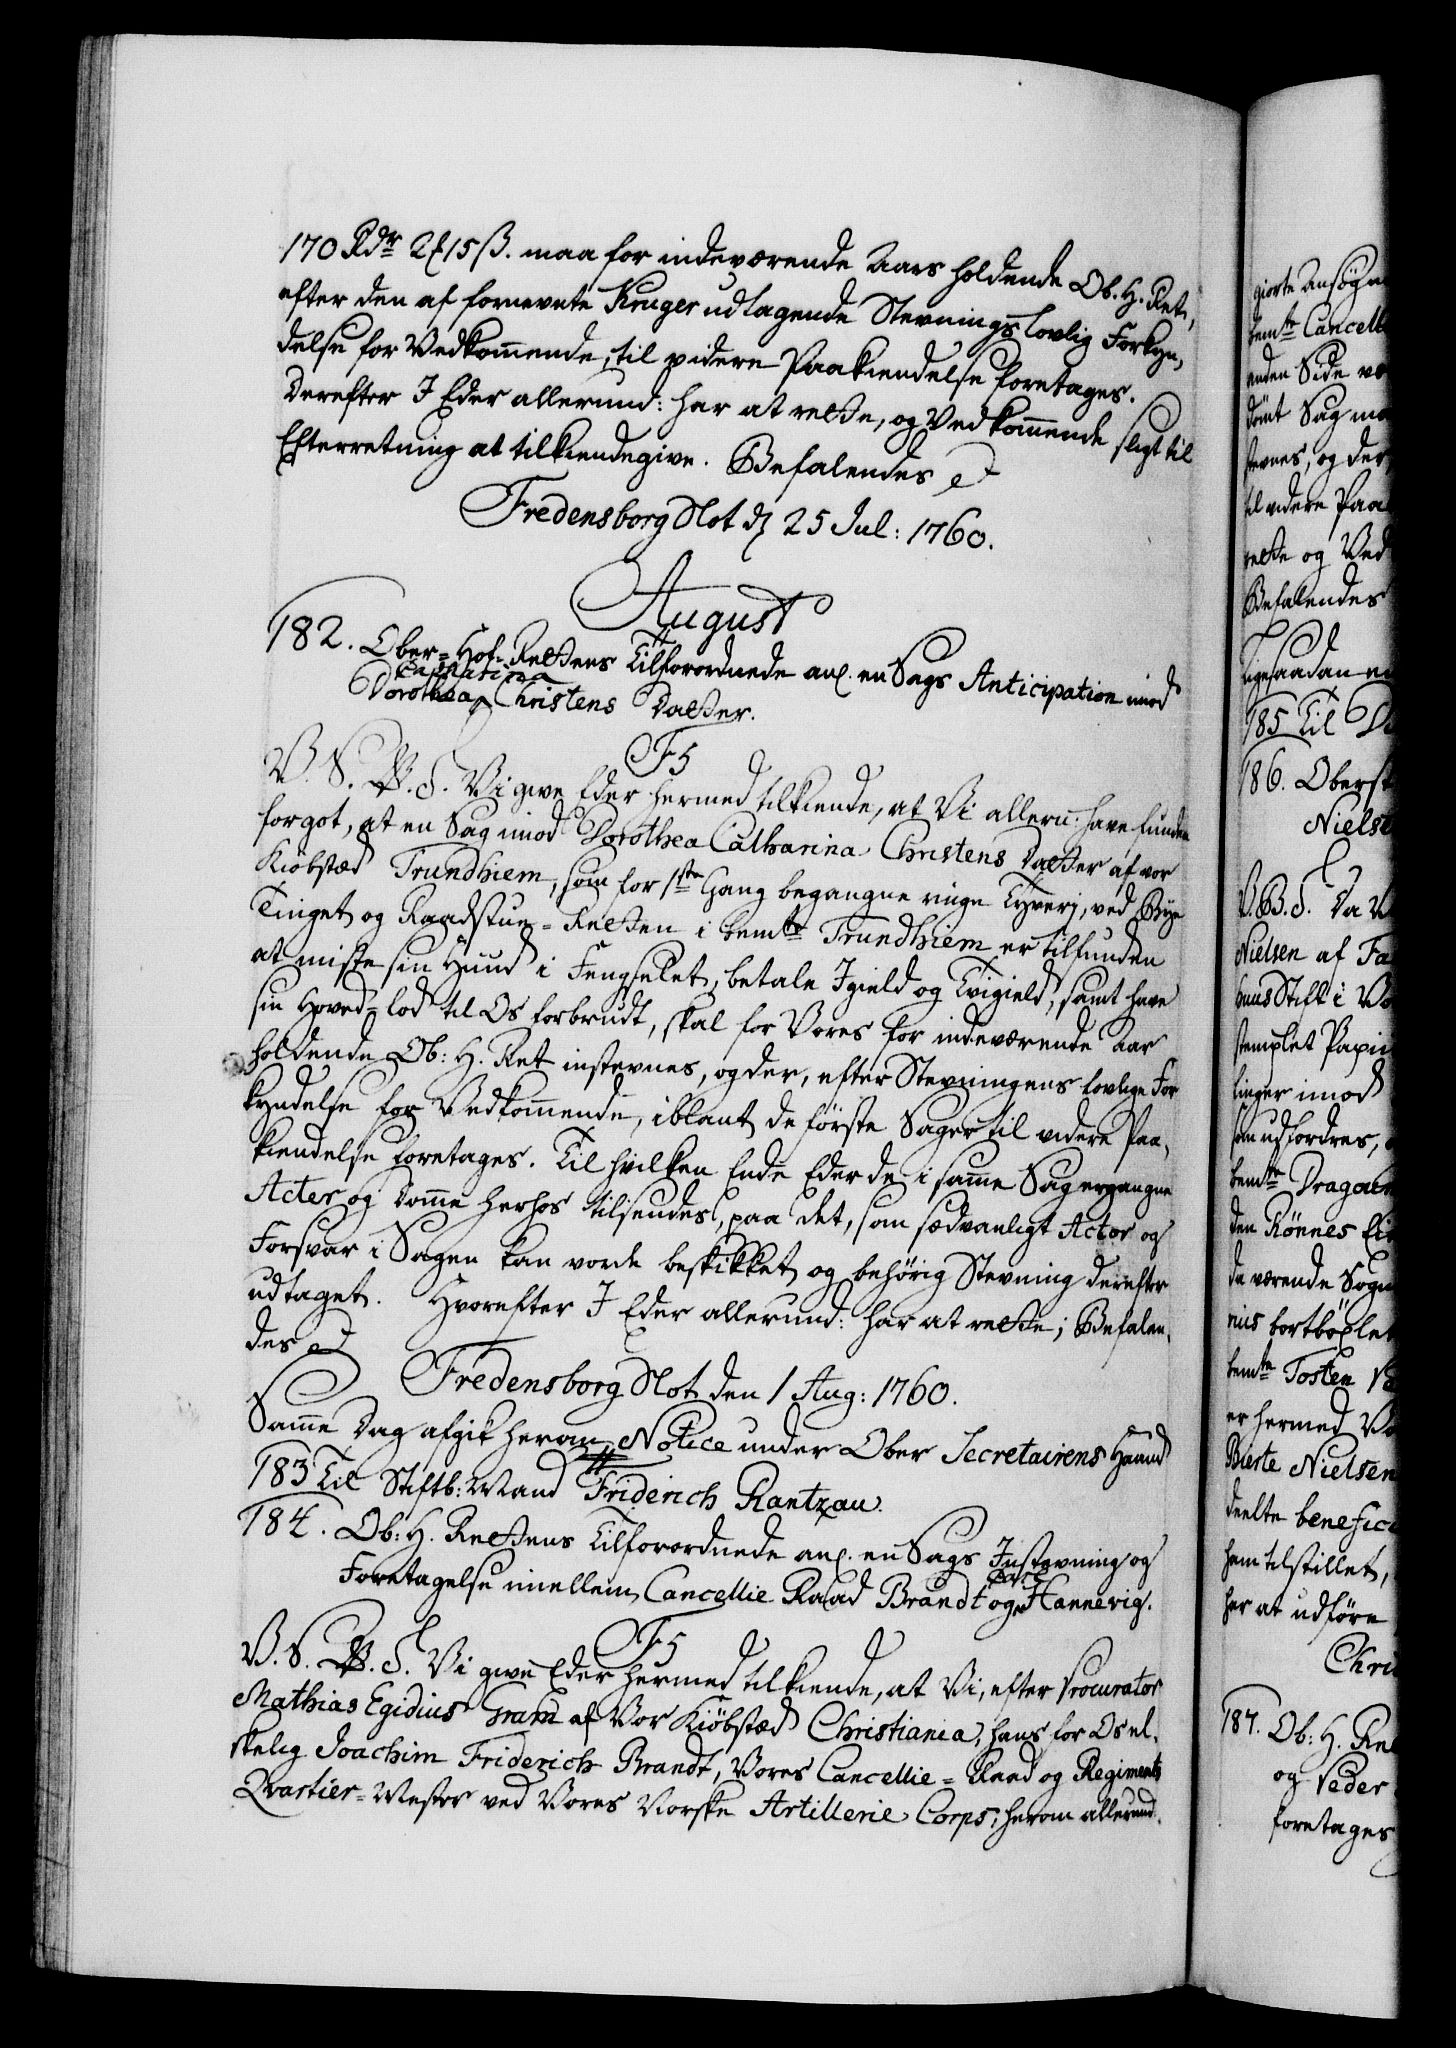 170 Rdr 2 15 ß. maa for indeværende Aars holdende Ob. H. Ret,
efter den af fornevnte Kruger udtagende Stevnings lovlig Forkyn,
delse for Vedkommende, til videre Paakiendelse foretages.
Derefter I Eder allerund: har at rette, og Vedkommende sligt til
Efterretning at tilkiendegive. Befalendes
Fredensborg Slot d 25 Jul: 1760.
August
182. Ober-Hof-Rettens Tilforordnede anl. en Sags Anticipation imod
Catharina
Dorothea Christens Datter.
F5
V. S. B. T. Vi give Eder hermed tilkiende, at Vi alleru: have funden
for got, at en Sag imod Dorothea Catharina Christens Datter af vor
Kiøbstæd Trundhiem, som for 1ste Gang begangne ringe Tyverj, ved Bye
Tinget og Raadstue-Retten i bemte Trundhiem er tilfunden
at miste sin Huud i Fengselet, betale Igield og Tvigield, samt have
sin Hoved-lod til Os forbrudt, skal for Vores for indeværende Aar
holdende Ob: H. Ret instevnes, og der, efter Stevningens lovlige For
kyndelse for Vedkommende, iblant de første Sager til videre Paa,
kiendelse foretages. Til hvilken Ende Eder de i samme Sag ergangne
Acter og Domme herhos tilsendes, paa det, som sædvanligt Actor og
Forsvar i Sagen kan vorde beskikket og behørig Stevning derefter
udtaget. Hvorefter I Eder allerund: har at rette; Befalen,
des
Fredensborg Slot den 1 Aug: 1760.
Samme Dag afgik herom Notice under Ober Secretairens Haand
183 Til Stiftb: Mand Friderich Rantzau.
184. Ob: H. Rettens Tilforordnede anl. en Sags Instevning og
Foretagelse imellem Cancellie Raad Brandt og Hannevig.
F5
V. S. B. T. Vi give Eder hermed tilkiende, at Vi, efter Procurator
Mathias Egidius Gram af Vor Kiøbstæd Christiania, hans for Os el.
skelig Joachim Friderich Brandt, Vores Cancellie-Raad og Regiments
Qvartier-Mester ved Vores Norske Artillerie Corps, herom allerund.
giorte Ansøgn
bemte Cancell
anden Side
dømt Sag
stevnes, og der
til videre Paa
rette og Ved
Befalendes
Ligesaadan
185 Til
186. Oberst
Nielse
V. B. T. Da
Nielsen af Fa
huus Stift i Vo
stemplet Papii
linger imod
som udfordres,
bemte Dragoon
den Rønnes
da værende Sogn
bemte Tosten
er hermed Vo
Bierte Nielsen
deelte benefic
ham tilstillet,
her at udføre
Chri
187. Ob: H. Re
og Peder
foretages